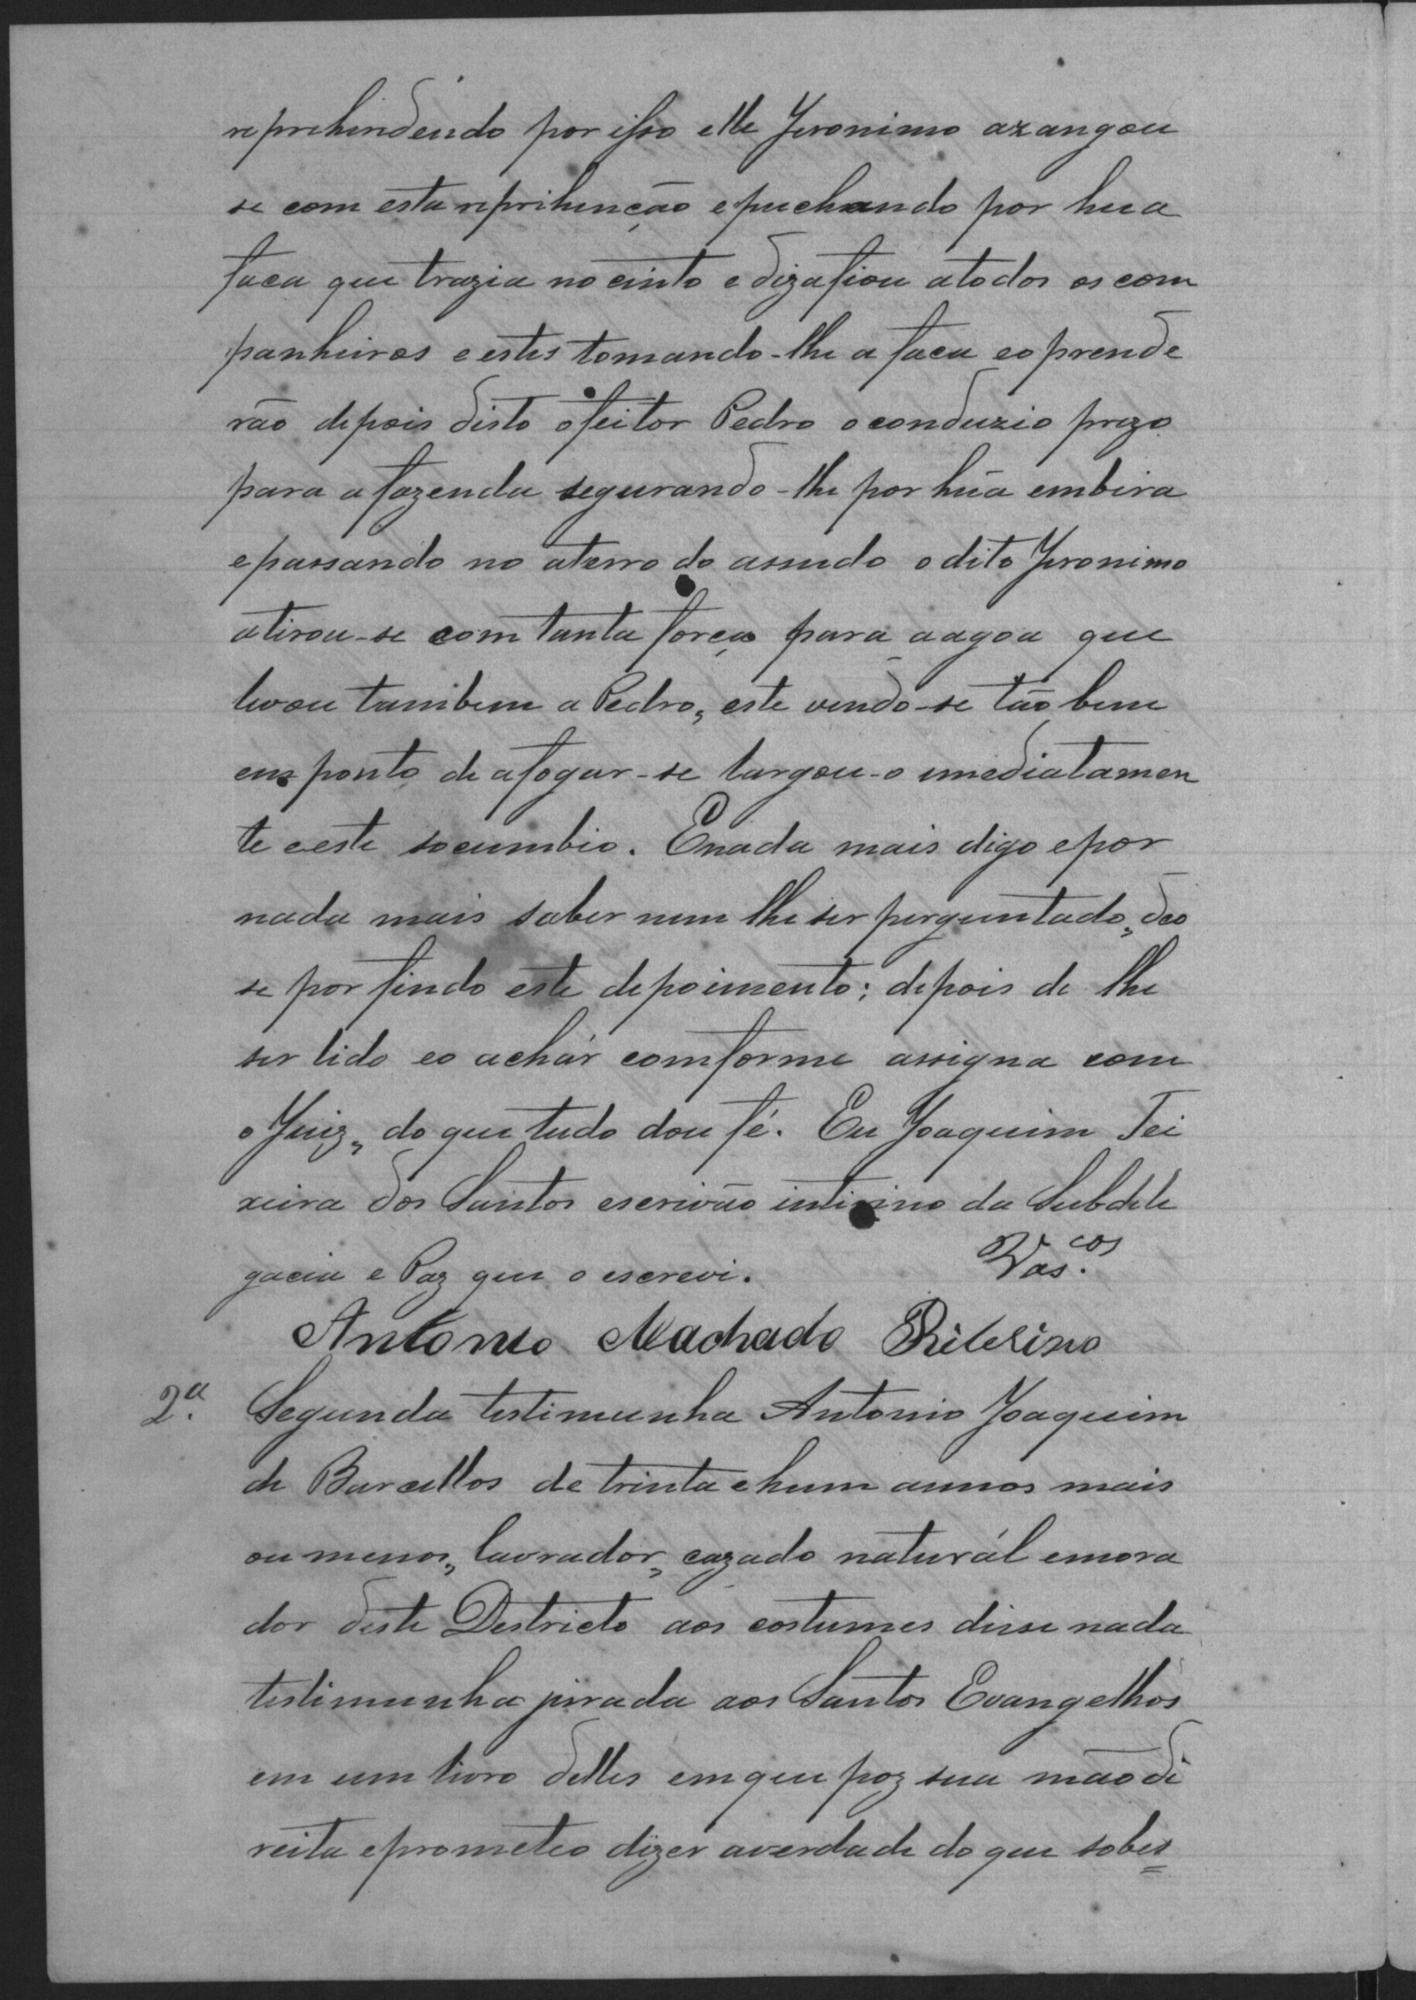 reprehindendo por isso elle Jeronimo azangou
se com esta reprihenção e puchando por hua
faca que trazia no cinto e dizafiou a todos os com
panheiros e estes tomando-lhe a faca e o prende
rão depois disto o feitor Pedro o conduzio prezo
para a fazenda segurando-lhe por hũa embira
e passando no aterro do assudo o dito Jeronimo
atirou-se com tanta força para a agoa que
levou tambem a Pedro, este vendo-se tão bem
em ponto de afogar-se largou-o imediatamen
te e este socumbio. E nada mais digo e por
nada mais saber nem lhe ser perguntado, deo
se por findo este depoimento; depois de lhe
ser lido e o achár comforme assigna com
o Juiz, do que tudo dou fé. Eu Joaquim Tei
xeira dos Santos escrivão interino da Subdele
gacia e Paz que o escrevi. Vas.cos
Antonio Machado
2.a Segunda testimunha Antonio Joaquim
de Barcellos de trinta e hum annos mais
ou menos, lavrador, cazado naturál e mora
dor deste Destricto aos costumes disse nada
testimunha jurada aos Santos Evangelhos
em um livro delles em que poz sua mão di
reita e prometeo dizer a verdade do que sober